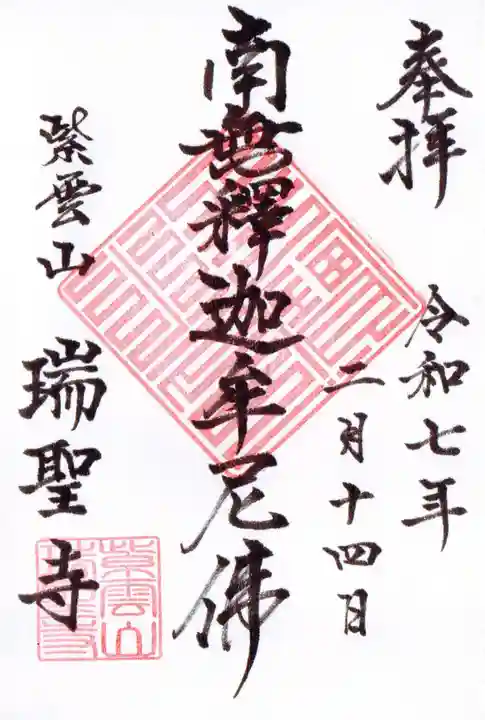 奉拝
令和七年
二月十四日
南無釋迦牟尼佛
紫雲山
瑞聖寺
紫雲山
瑞聖寺